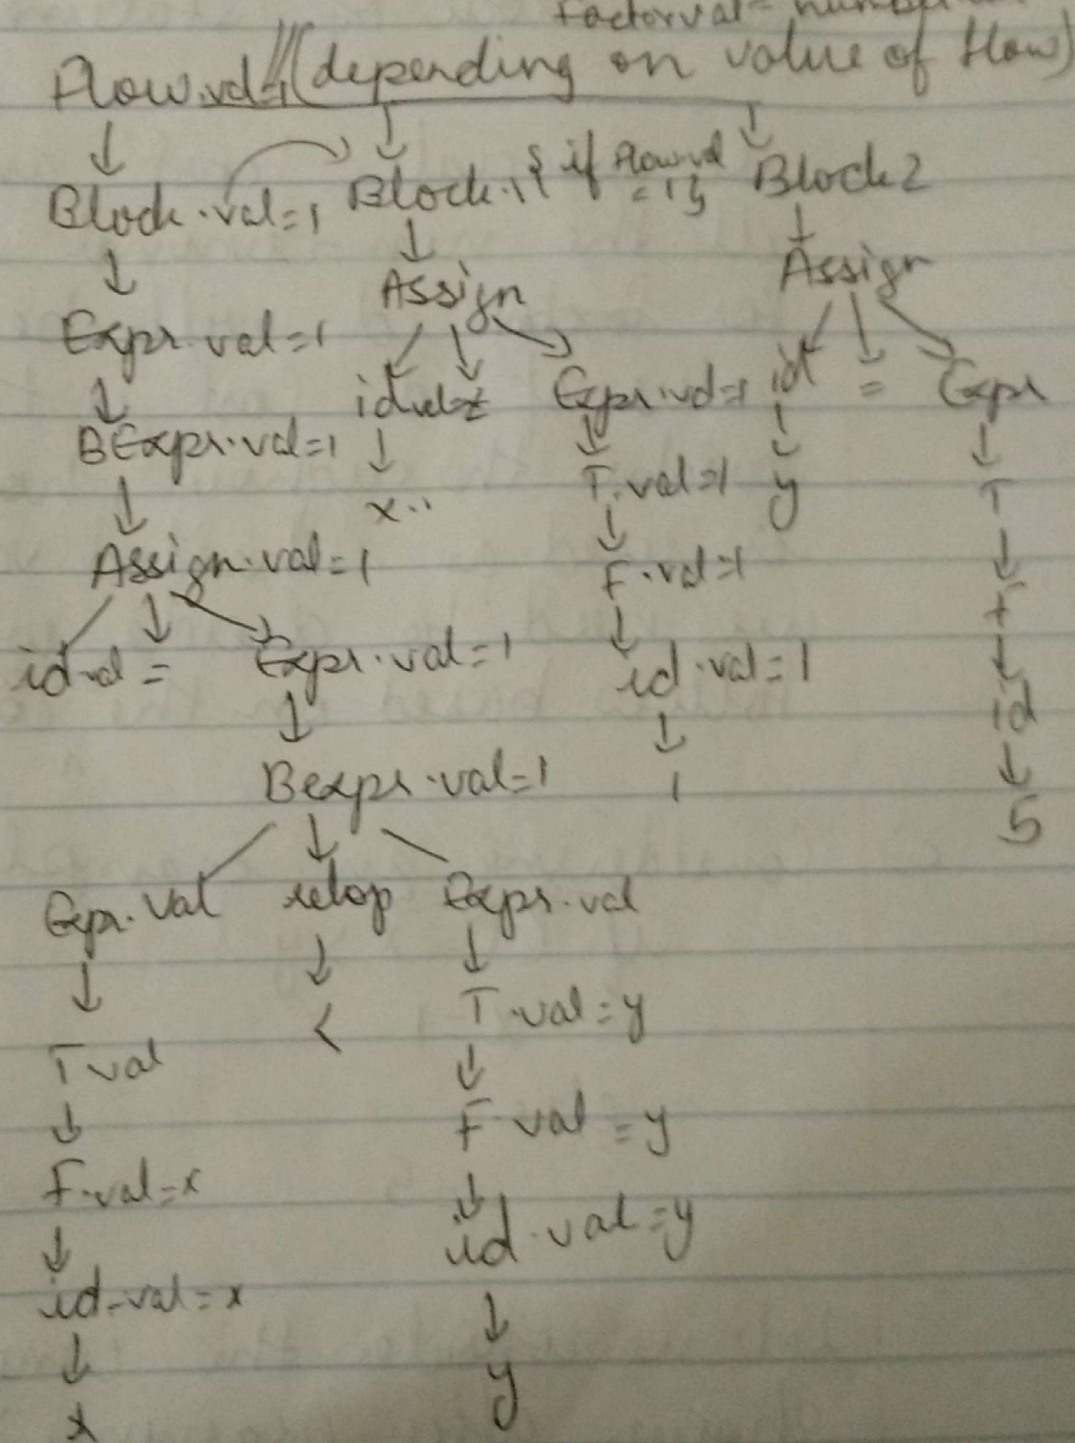 Factorval = number
Flow.val=1 (depending on value of flow)
Block.val=1 Block.1 { if Flow.val =1} Block2
Assign Assign
Expr.val=1
id.val = Expr.val=1 id = Expr
BExpr.val=1
x T.val=1 y T
Assign.val=1 F.val=1 F
id.val = Expr.val=1 id.val=1 id
Bexpr.val=1 1 5
Expr.val relop Expr.val
T.val < T.val=y
F.val=x F.val=y
id.val=x id.val=y
x y